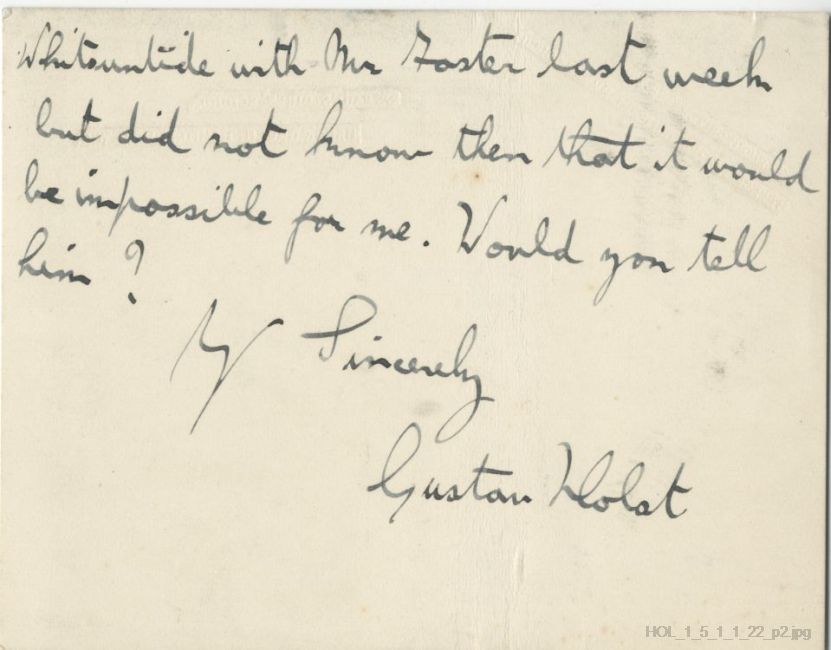 Whitsuntide with Mr Foster last week
but did not know then that it would
be impossible for me. Would you tell
him?
Yr Sincerely
Gustav Holst
HOL_1_5_1_1_22_p2.jpg